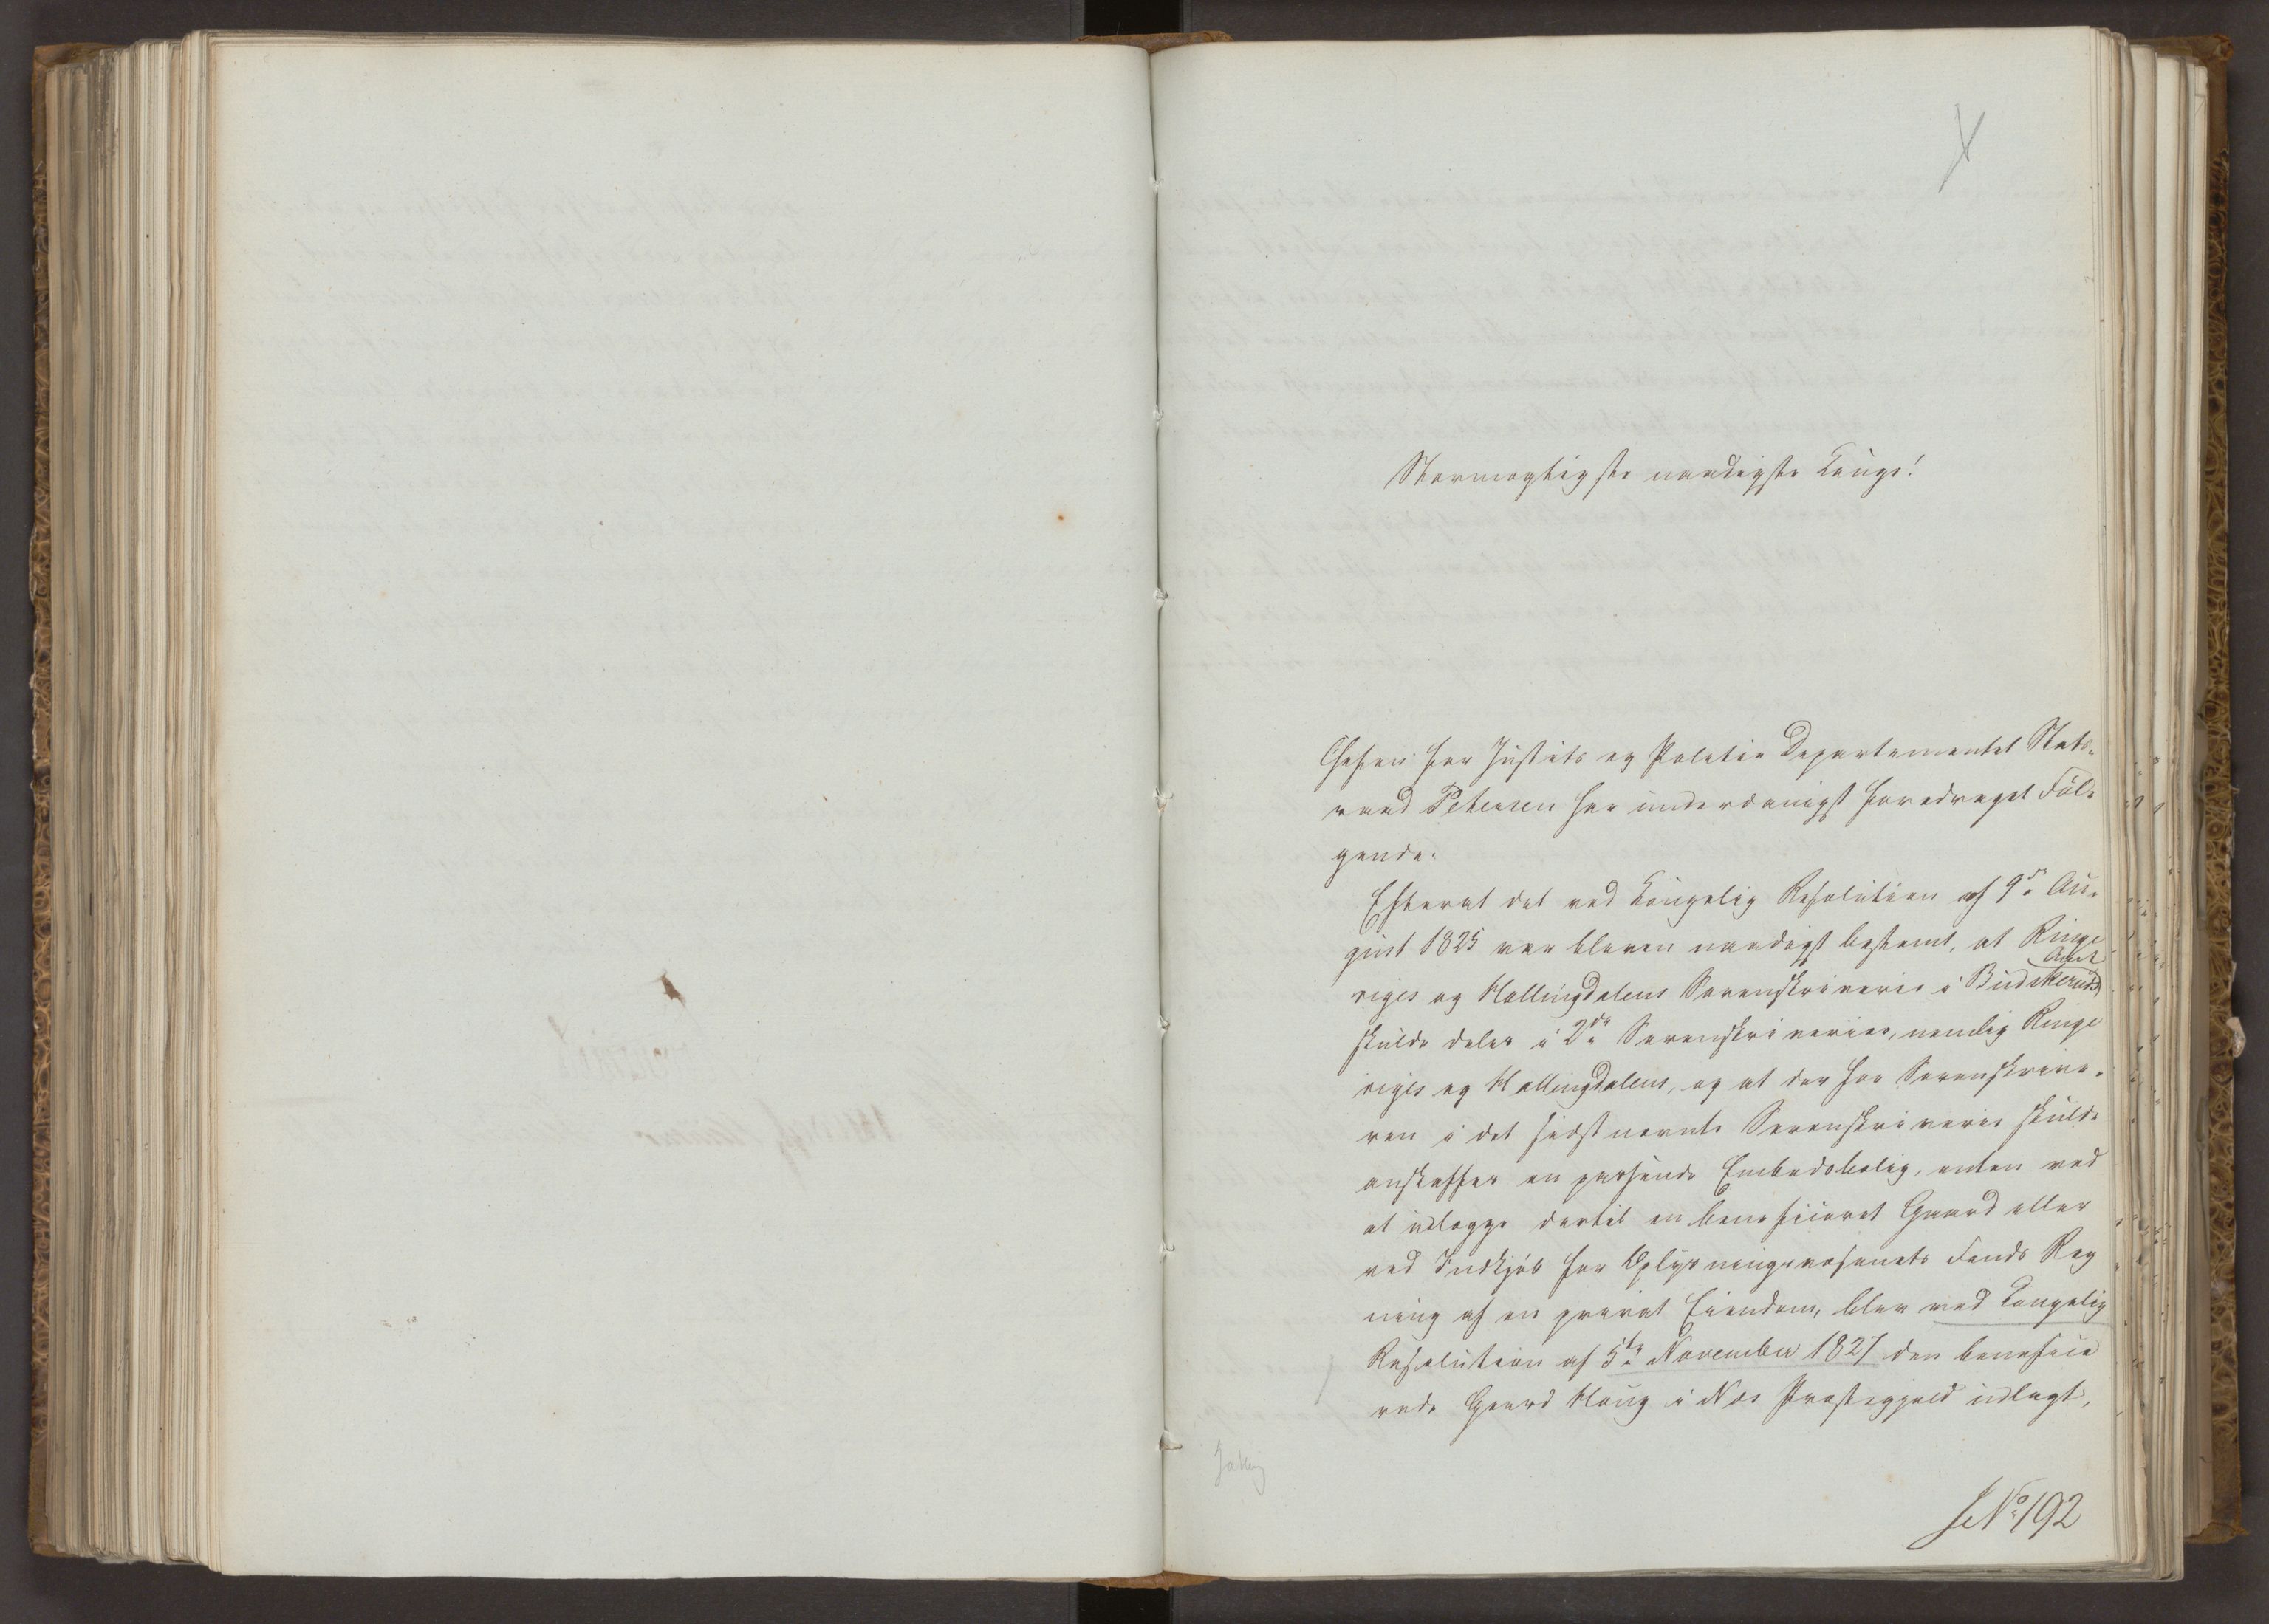 Stormægtigste naadigste Konge!
Chefen for Justits og Politie Departementet Stats-
raad Petersen har underdanigst foredraget Føl-
gende:
Efterat det ved Kongelig Resolution af 9de Au-
gust 1825 var bleven naadigst bestemt, at Ringe
riges og Hallingdalens Sorenskriverie i Budskeruds Amt
skulde deles i 2de Sorenskriverier, nemlig Ringe
riges og Hallingdalens, og at der for Sorenskrive-
ren i det sidstnevnte Sorenskriverie skulde
anskaffes en passende Embedsbolig, enten ved
at udlægge dertil en beneficeret Gaard eller
ved Indkjøb for Oplysningsvæsenets Fonds Reg
ning af en privat Eiendom, blev ved Kongelig
Resolution af 5te November 1827 den beneficie
rede Gaard Haug i Næs Præstegjeld udlagt,
JNo 192